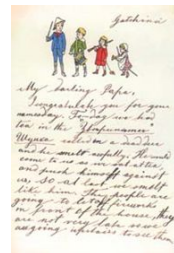 Gatchina
My darling Papa,
I congratulate you for your
namesday. Today we had
tea in the
and he smelt awfully. He would
come to us
and push himself against
us so at last we smelt
like him. The people are
going to let off fireworks
in front of the house, they
are not very late so we
are going upstairs to see them